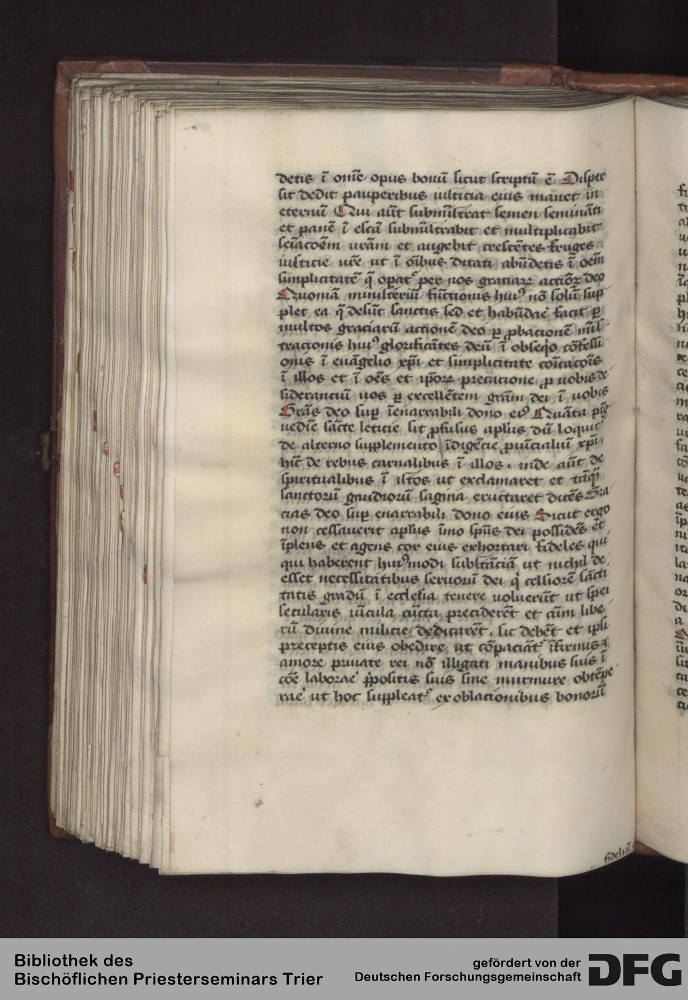 detis ī om̄e opus bonū sicut scriptū ē Disper
sit dedit pauperibus iusticia eius manet in
eternū Qui aūt submīstrat semen semināti
et panē ī escā submīstrabit et multiplicabit
et augebit crescētes fruges
iusticie vr̄e ut ī oībus ditati abūdetis ī oēm
simplicitatē q̄ opat᷒ per nos graciarꝝ actiōꝫ deo
Quoniā ministeriū fūctionis huiꝰ nō solū sup
plet ea q̄ desūt sanctis sed et habūdat facit ꝑ
multos graciarū actionē deo ꝑ ꝓbacionem mīs
tracionis huiꝰ glorificātes deū ī obseqō cōfessi
onis ī euāgelio xp̄i et simplicitate cōicacōis
ī illos et ī oēs et ip̄orꝝ precacione ꝓ uobis de
siderantiū uos ꝑ excellētem grām dei ī uobis
Grās deo suꝑ īenarrabili dono eiꝰ Quāta
sācte leticie sit ꝓfusus apl̄us dū loquit᷒
de alterno supplemento īdigēcie ꝓuincialiū xp̄i
hīc de rebus carnalibus ī illos, inde aūt de
spiritualibus ī istos ut exclamaret et tāqͣ
sanctorū gaudiorū sagina eructaret dicēs Gra
cias deo suꝑ enarrabili dono eius Sicut ergo
non cessauerit apl̄us īmo spūs dei possidēs et
īplens et agens cor eius exhortari fideles qui
qui haberent huiꝰmodi substāciā ut nichil de
esset necessitatibus seruorū dei q̄ celsiorē sācti
tatis gradū ī ecclesia tenere voluerūt ut spei
secularis uīcula cūcta preciderēt et aīm libe
rū diuine milicie dedicarēt, sic debēt et ipsi
preceptis eius obedire ut cōpaciāt᷒ īfirmis ⁊
amore priuate rei nō illigati manibus suis ī
cōe laborare p̄positis suis sine murmure obtēpe
rare ut hoc suppleat᷒ ex oblacionibus bonorū
fideliū
Bibliothek des
Bischöflichen Priesterseminars Trier
gefördert von der
Deutschen Forschungsgemeinschaft
DFG